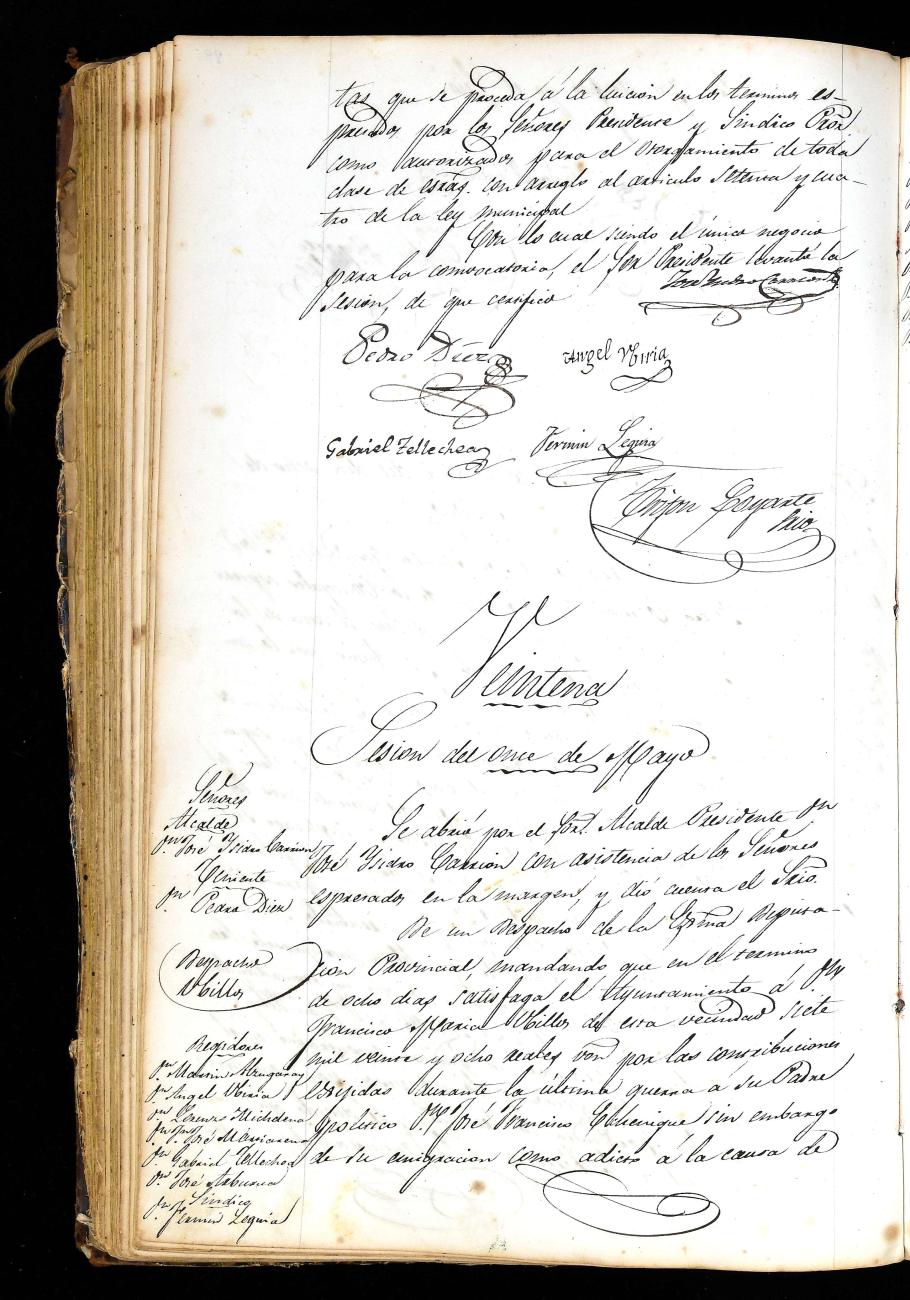 tas que se proceda á la luicion en los terminos es-
presados por los Señores Presidente y Sindico Pror.
como autorizados para el otorgamiento de toda
clase de esrás. con arreglo al articulo setenta y cua-
tro de la ley municipal
Con lo cual siendo el único negocio
para la convocatoria, el Sor Presidente levantó la
Sesion, de que certifico
José Ysidro Carrion
Pedro Diez
Angel Ubiria
Gabriel Tellechea
Fermin Leguia
Goyarte
Srio
Veintena
Sesion del once de Mayo
Señores
Alcalde
Dn José Isidro Carrion
Teniente
Dn Pedro Diez
Despacho
Ubillos
Regidores
Dn Martin
Dn Angel Ubiria
Dn Lorenzo Michelena
Dn José
Dn Gabriel Tellechea
Dn José
Sindico
Dn Fermin Leguia
Se abrió por el Sor. Alcalde Presidente Dn
José Ysidro Carrion con asistencia de los Señores
espresados en la margen, y dió cuenta el Srio.
De un Despacho de la Exma Diputa-
cion Provincial, mandando que en el termino
de ocho dias satisfaga el Ayuntamiento á Dn
Francisco Maria Ubillos de esta vecindad siete
mil veinte y ocho reales von por las contribuciones
exijidas durante la última guerra a su Padre
politico Dn José Francisco sin embargo
de su emigracion como adicto á la causa de